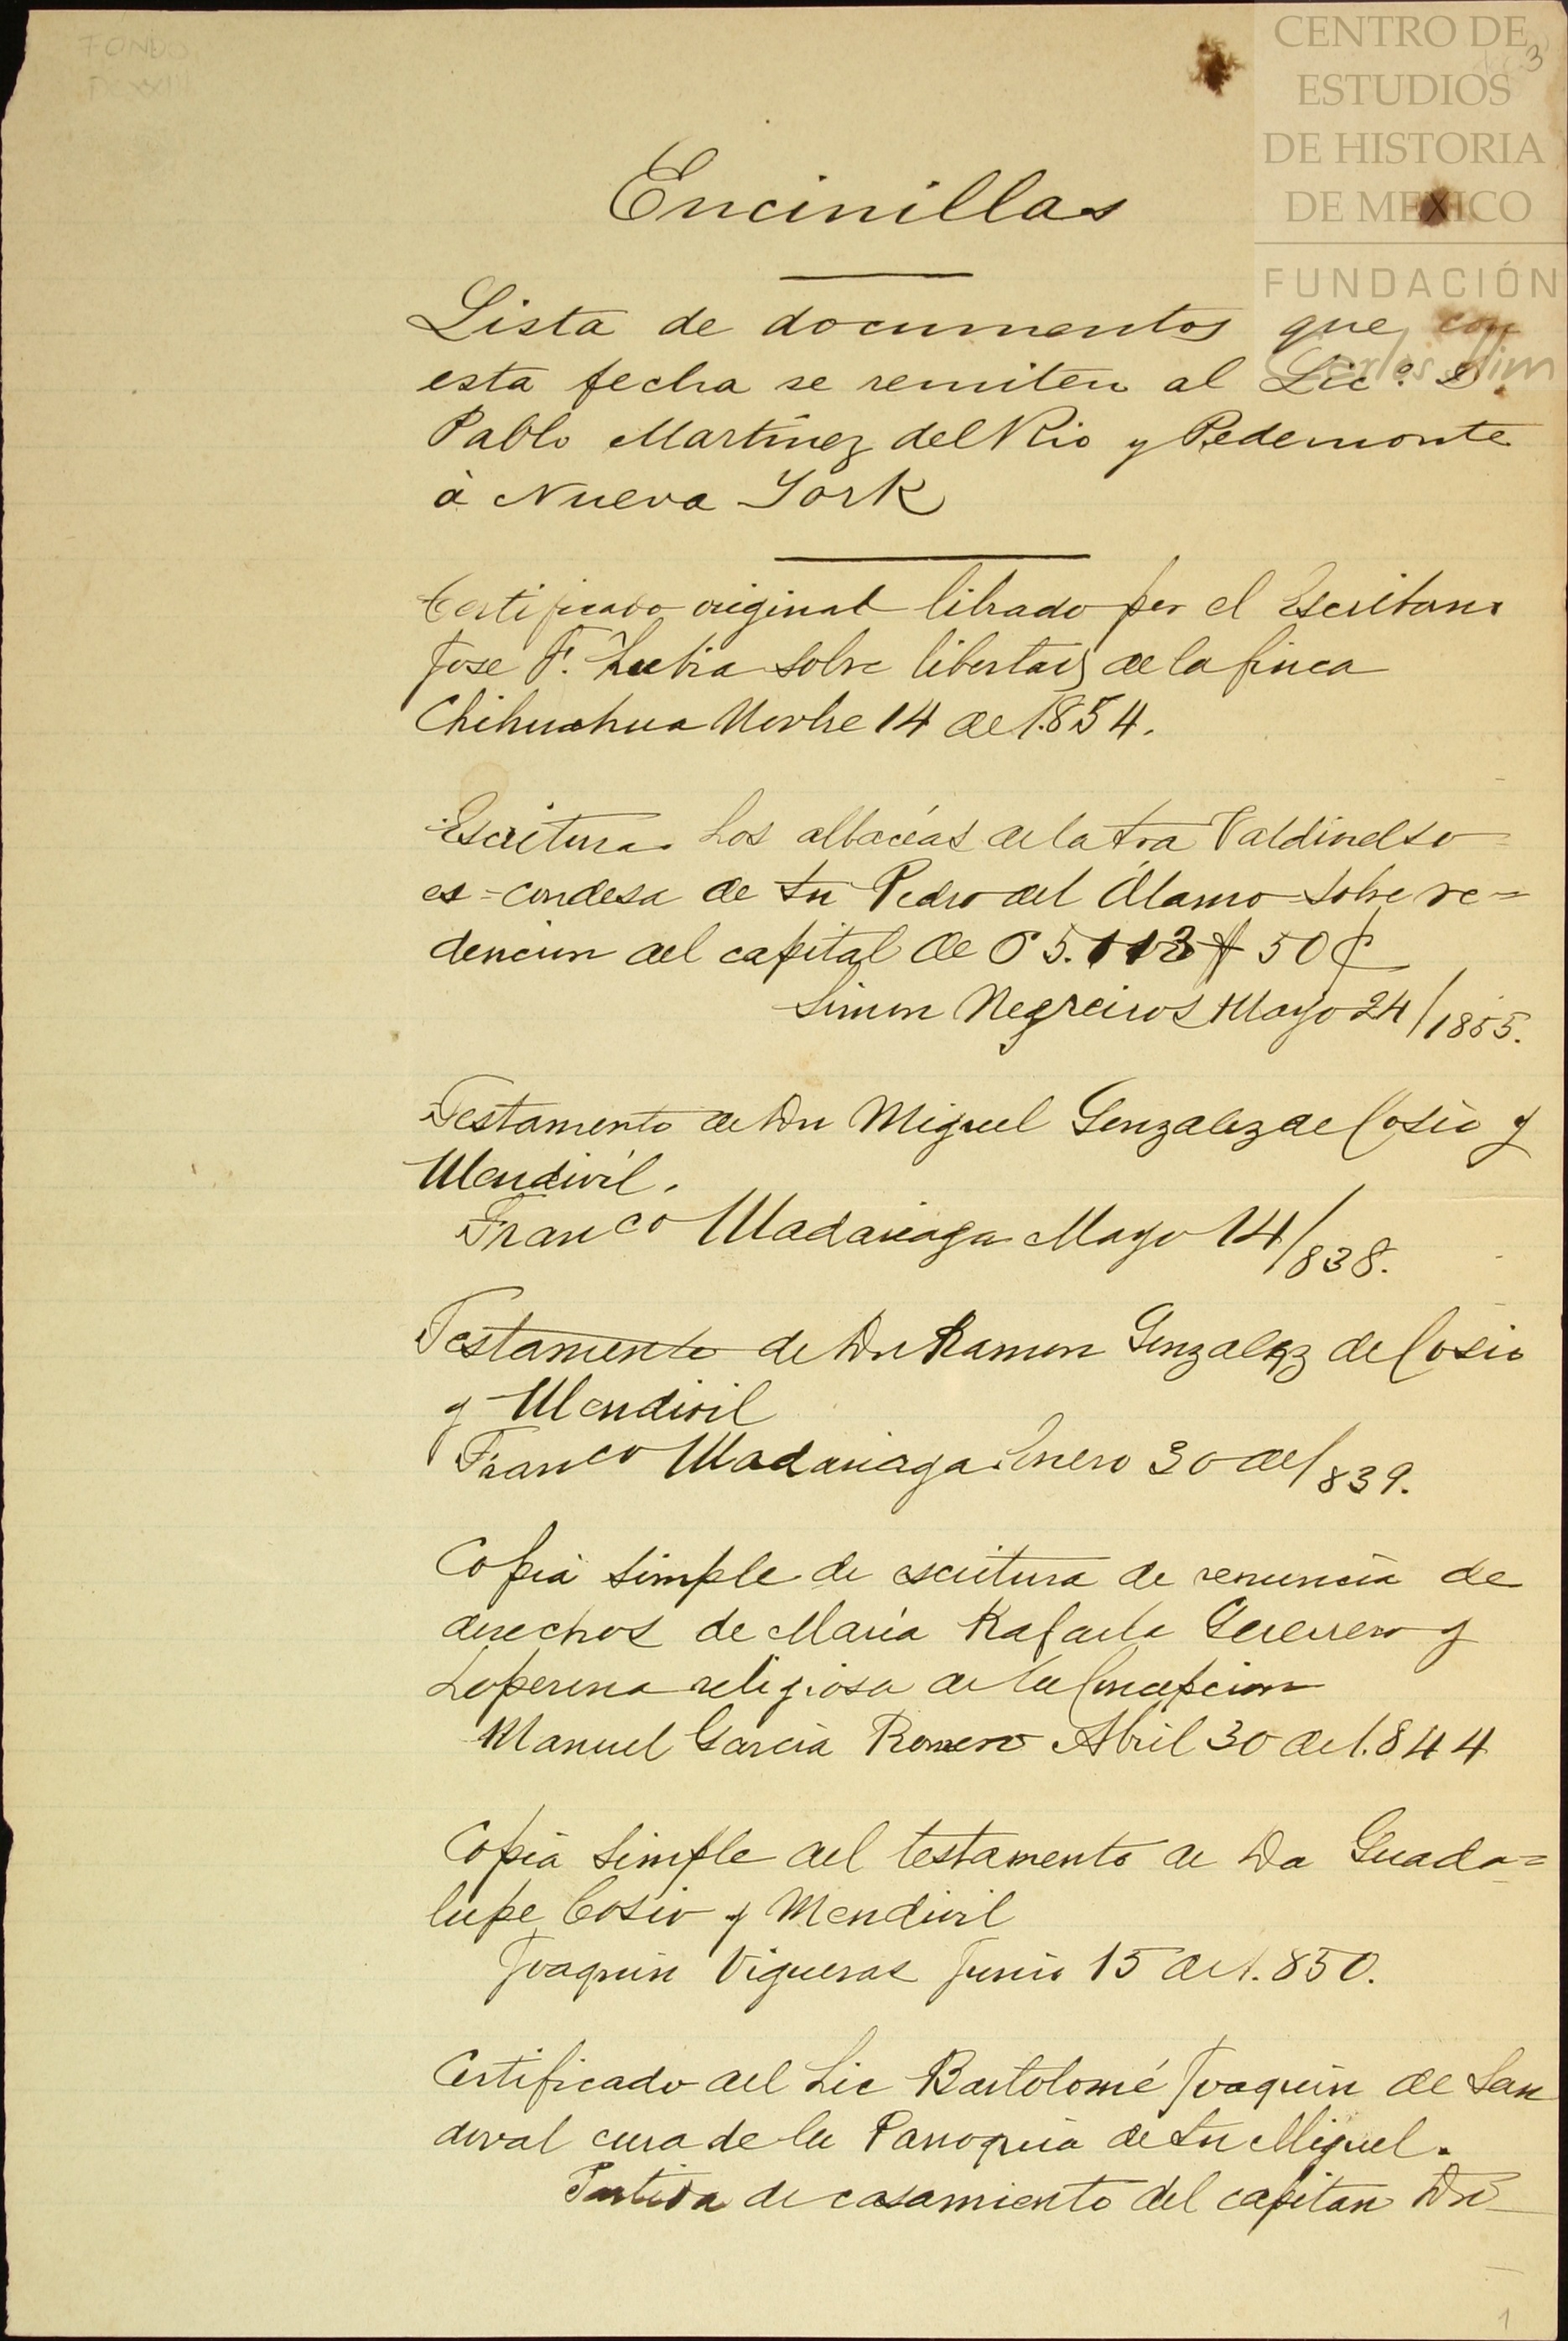 FONDO
CENTRO DE
ESTUDIOS
DE HISTORIA
DE MEXICO
FUNDACIÓN
Carlos Slim
3
Encinillas
Lista de documentos que con
esta fecha se remiten al Licº. D.
Pablo Martínez del Rio y Pedemonte
à Nueva York
Certificado original librado por el Escribano
Jose F. Lubia sobre libertad de la finca
Chihuahua Novbre 14 de 1.854.
Escritura Los albaceas de la Sra Valdivielso
ex=condesa de Sn Pedro del Álamo sobre re=
dencion del capital de 50 ¢
Simon Negreiros Mayo 24/1855.
Testamento de Dn Miguel Gonzalez de Cosio y
Mendivil.
Franco Madariaga Mayo 14/838.
Testamento de Dn Ramon Gonzalez de Cosio
y Mendivil
Franco Madariaga Enero 30 de/839.
Copia simple de escritura de renuncia de
derechos de María Rafaela Guerrero y
Loperena religiosa de la Concepcion
Manuel García Romero Abril 30 de 1.844
Copia simple del testamento de Da Guada=
lupe Cosio y Mendivil
Joaquin Vigueras Junio 15 de 1.850.
Certificado del Lic Bartolomé Joaquin de San
doval cura de la Parroquia de Sn Miguel.
Partida de casamiento del capitan Dn
1